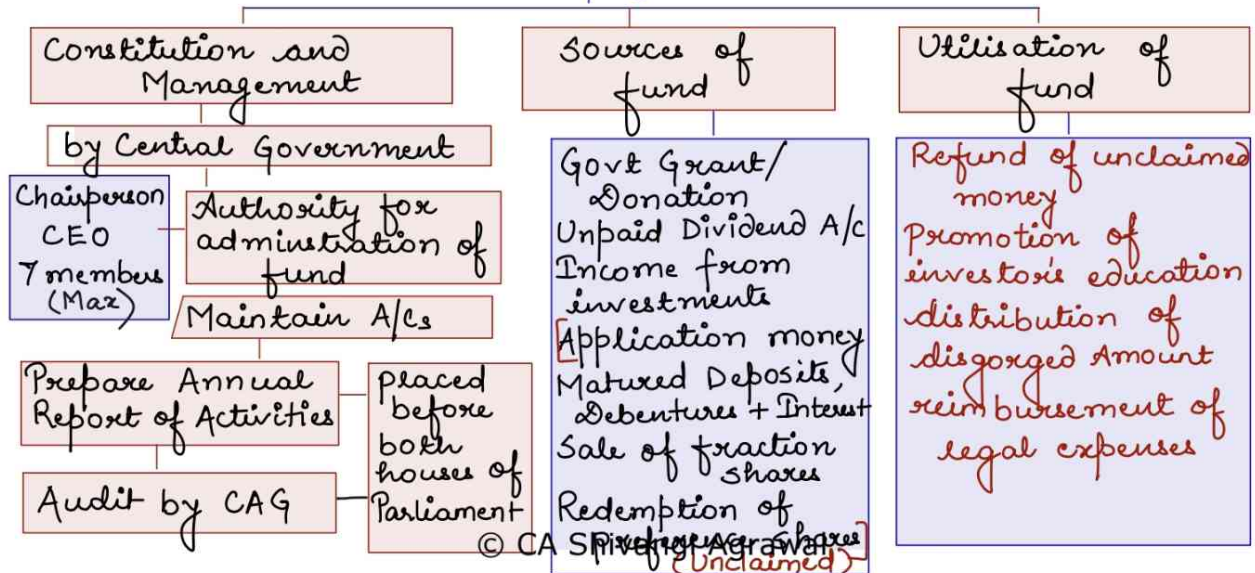 Constitution and
Management
by Central Government
Chairperson
CEO
7 members
(Max)
Authority for
adminstration of
fund
Maintain A/Cs
Prepare Annual
Report of Activities
Audit by CAG
placed
before
both
houses of
Parliament
Sources of
fund
Govt Grant/
Donation
Unpaid Dividend A/c
Income from
investments
[Application money
Matured Deposits,
Debentures + Interest
Sale of fraction
shares
Redemption of
preference shares]
(Unclaimed)
Utilisation of
fund
Refund of unclaimed
money
Promotion of
investor's education
distribution of
disgorged Amount
reimbursement of
legal expenses
© CA Shivangi Agrawal